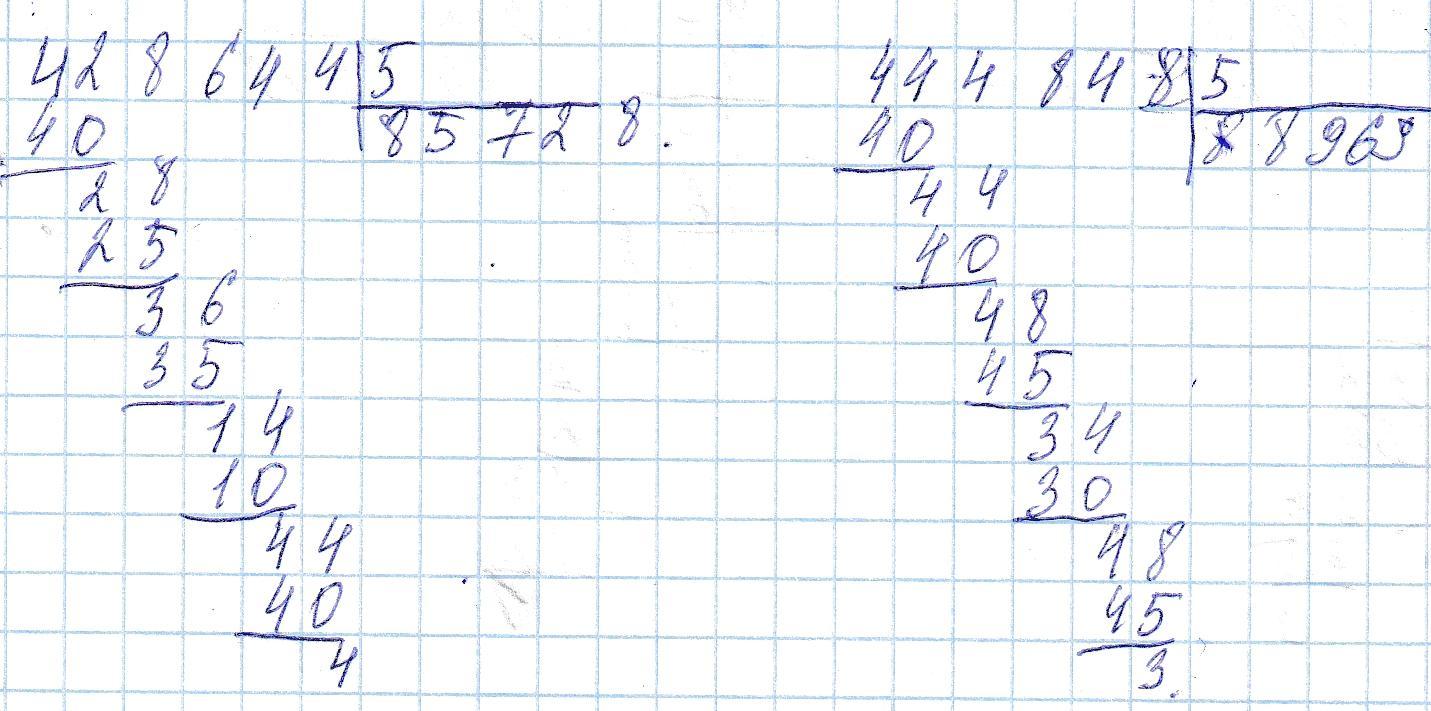 428644|5
40 85728.
28
25
36
35
14
10
44
40
4
444848|5
40 88969
44
40
48
45
34
30
48
45
3.